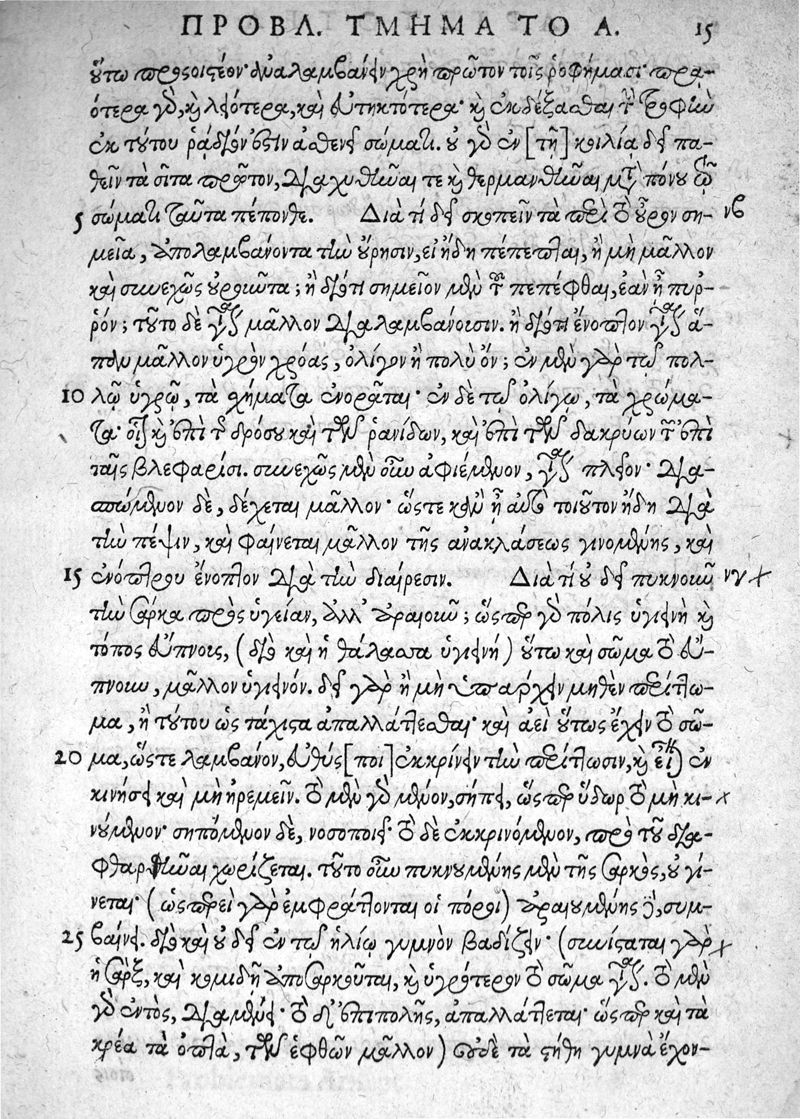 ΠΡΟΒΛ. ΤΜΗΜΑ ΤΟ Α. 15
οὕτω προσοιστέον· ἀναλαμβάνειν χρὴ πρῶτον τοῖς ῥοφήμασι· πρᾳ-
ότερα γὰρ, καὶ λειότερα, καὶ εὐτηκτότερα· καὶ ἐκδέξασθαι τὴν τροφὴν
ἐκ τούτου ῥάδιόν ἐστιν ἀσθενεῖ σώματι. οὐ γὰρ ἐν [τῇ] κοιλίᾳ δεῖ πα-
θεῖν τὰ σῖτα πρῶτον, διαχυθῆναί τε καὶ θερμανθῆναι μετὰ πόνου τῷ
5 σώματι ταῦτα πέπονθε. Διὰ τί δεῖ σκοπεῖν τὰ περὶ τὸ οὖρον ση- νβ
μεῖα, ἀπολαμβάνοντα τὴν οὔρησιν, εἰ ἤδη πέπεπται, ἢ μὴ μᾶλλον
καὶ συνεχῶς οὐροῦντα; ἢ διότι σημεῖον μὲν τοῦ πεπέφθαι, ἐὰν ᾖ πυρ-
ρόν; τοῦτο δὲ γίνεται μᾶλλον διαλαμβάνουσιν. ἢ διότι ἔνοπτρον γίνεται ἅ-
παν μᾶλλον ὑγρὸν χρόας, ὀλίγον ἢ πολὺ ὄν; ἐν μὲν γὰρ τῷ πολ-
10 λῷ ὑγρῷ, τὰ σχήματα ἐνορᾶται· ἐν δὲ τῷ ὀλίγῳ, τὰ χρώμα-
τα· οἷον καὶ ἐπὶ τῆς δρόσου καὶ τῶν ῥανίδων, καὶ ἐπὶ τῶν δακρύων τῶν ἐπὶ
ταῖς βλεφαρίσι. συνεχῶς μὲν οὖν ἀφιέμενον, γίνεται πλεῖον· δια-
σπώμενον δὲ, δέχεται μᾶλλον· ὥστε κἂν ᾖ αὐτὸ τοιοῦτον ἤδη διὰ
τὴν πέψιν, καὶ φαίνεται μᾶλλον τῆς ἀνακλάσεως γινομένης, καὶ
15 ἐνόπτρου ἔνοπτον διὰ τὴν διαίρεσιν. Διὰ τί οὐ δεῖ πυκνοῦν νγ
τὴν σάρκα πρὸς ὑγείαν, ἀλλ' ἀραιοῦν; ὥσπερ γὰρ πόλις ὑγιεινὴ καὶ
τόπος εὔπνοις, (διὸ καὶ ἡ θάλαττα ὑγιεινή) οὕτω καὶ σῶμα τὸ εὔ-
πνουν, μᾶλλον ὑγιεινόν. δεῖ γὰρ ἢ μὴ ὑπάρχειν μηθὲν περίττω-
μα, ἢ τούτου ὡς τάχιστα ἀπαλλάττεσθαι· καὶ ἀεὶ οὕτως ἔχειν τὸ σῶ-
20 μα, ὥστε λαμβάνον, εὐθύς [ποι] ἐκκρίνειν τὴν περίττωσιν, καὶ εἶναι ἐν
κινήσει καὶ μὴ ἠρεμεῖν. τὸ μὲν γὰρ μένον, σήπει, ὥσπερ ὕδωρ τὸ μὴ κι-
νούμενον· σηπόμενον δὲ, νοσοποιεῖ· τὸ δὲ ἐκκρινόμενον, πρὸ τοῦ δια-
φθαρῆναι χωρίζεται. τοῦτο οὖν πυκνουμένης μὲν τῆς σαρκὸς, οὐ γί-
νεται· (ὡσπερεὶ γὰρ ἐμφράττονται οἱ πόροι) ἀραιουμένης δὲ, συμ-
25 βαίνει. διὸ καὶ οὐ δεῖ ἐν τῷ ἡλίῳ γυμνὸν βαδίζειν· (συνίσταται γὰρ
ἡ σὰρξ, καὶ κομιδῇ ἀποσαρκοῦται, καὶ ὑγρότερον τὸ σῶμα γίνεται. τὸ μὲν
γὰρ ἐντὸς, διαμένει· τὸ δ' ἐπιπολῆς, ἀπαλλάττεται· ὥσπερ καὶ τὰ
κρέα τὰ ὀπτὰ, τῶν ἑφθῶν μᾶλλον) οὐδὲ τὰ στήθη γυμνὰ ἔχον-